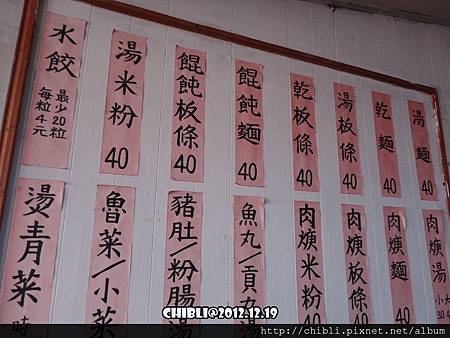 湯麵 40
乾麵 40
湯板條 40
乾板條 40
餛飩麵 40
餛飩板條 40
湯米粉 40
水餃 最少20粒
每粒4元
肉焿湯
小 大
30 4
肉焿麵
肉焿板條
肉焿米粉
魚丸/貢丸湯
豬肚/粉腸湯
魯菜/小菜
燙青菜 時
CHIBLI@2012.12.19
http://chibli.pixnet.net/album